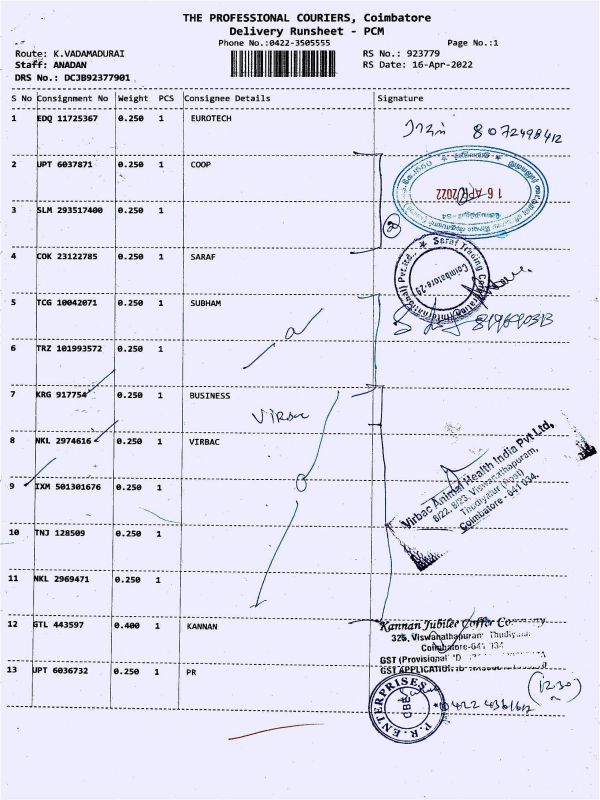 THE PROFESSIONAL COURIERS, Coimbatore
Delivery Runsheet - PCM
Phone No.:0422-3505555
Page No.:1
Route: K.VADAMADURAI
RS No.: 923779
Staff: ANADAN
RS Date: 16-Apr-2022
DRS No.: DCJB92377901
S No Consignment No Weight PCS Consignee Details Signature
1 EDQ 11725367 0.250 1 EUROTECH
8072498412
2 UPT 6037871 0.250 1 COOP
16 APR 2022
3 SLM 293517400 0.250 1
2
4 COK 23122785 0.250 1 SARAF
Saraf Trading Corporation (International) Pvt.Ltd.,
Coimbatore-29
5 TCG 10042071 0.250 1 SUBHAM
6 TRZ 101993572 0.250 1
7 KRG 917754 0.250 1 BUSINESS
Virbac
8 NKL 2974616 0.250 1 VIRBAC
Virbac Animal Health India Pvt Ltd,
8/22, 8/23, Viswanathapuram,
Thudiyalur (Post)
Coimbatore - 641 034.
9 IXM 501301676 0.250 1
10 TNJ 128509 0.250 1
11 NKL 2969471 0.250 1
12 GTL 443597 0.400 1 KANNAN
Kannan Jubilee Coffee Company
325, Viswanathapuram
Coimbatore-641 034
GST (Provisional
GST APPLICATION
13 UPT 6036732 0.250 1 PR
P.R. ENTERPRISES
CBE
(12.30)
0422 4361612